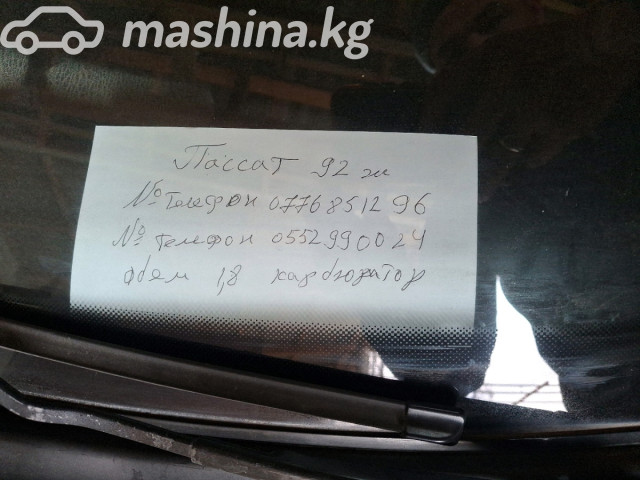 mashina.kg
Пассат 92 ж
№ телефон 0776851296
№ телефон 0552990024
обём 1,8 карбюратор